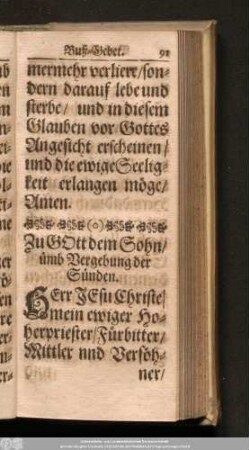 Buß-Gebet. 91
mermehr verliere/ son-
dern darauf lebe und
sterbe/ und in diesem
Glauben vor Gottes
Angesicht erscheinen/
und die ewige Seelig-
keit erlangen möge/
Amen.
Zu GOtt dem Sohn/
ümb Vergebung der
Sünden.
HErr JEsu Christe/
mein ewiger Ho-
herpriester/ Fürbitter/
Mittler nnd Versöh-
ner/